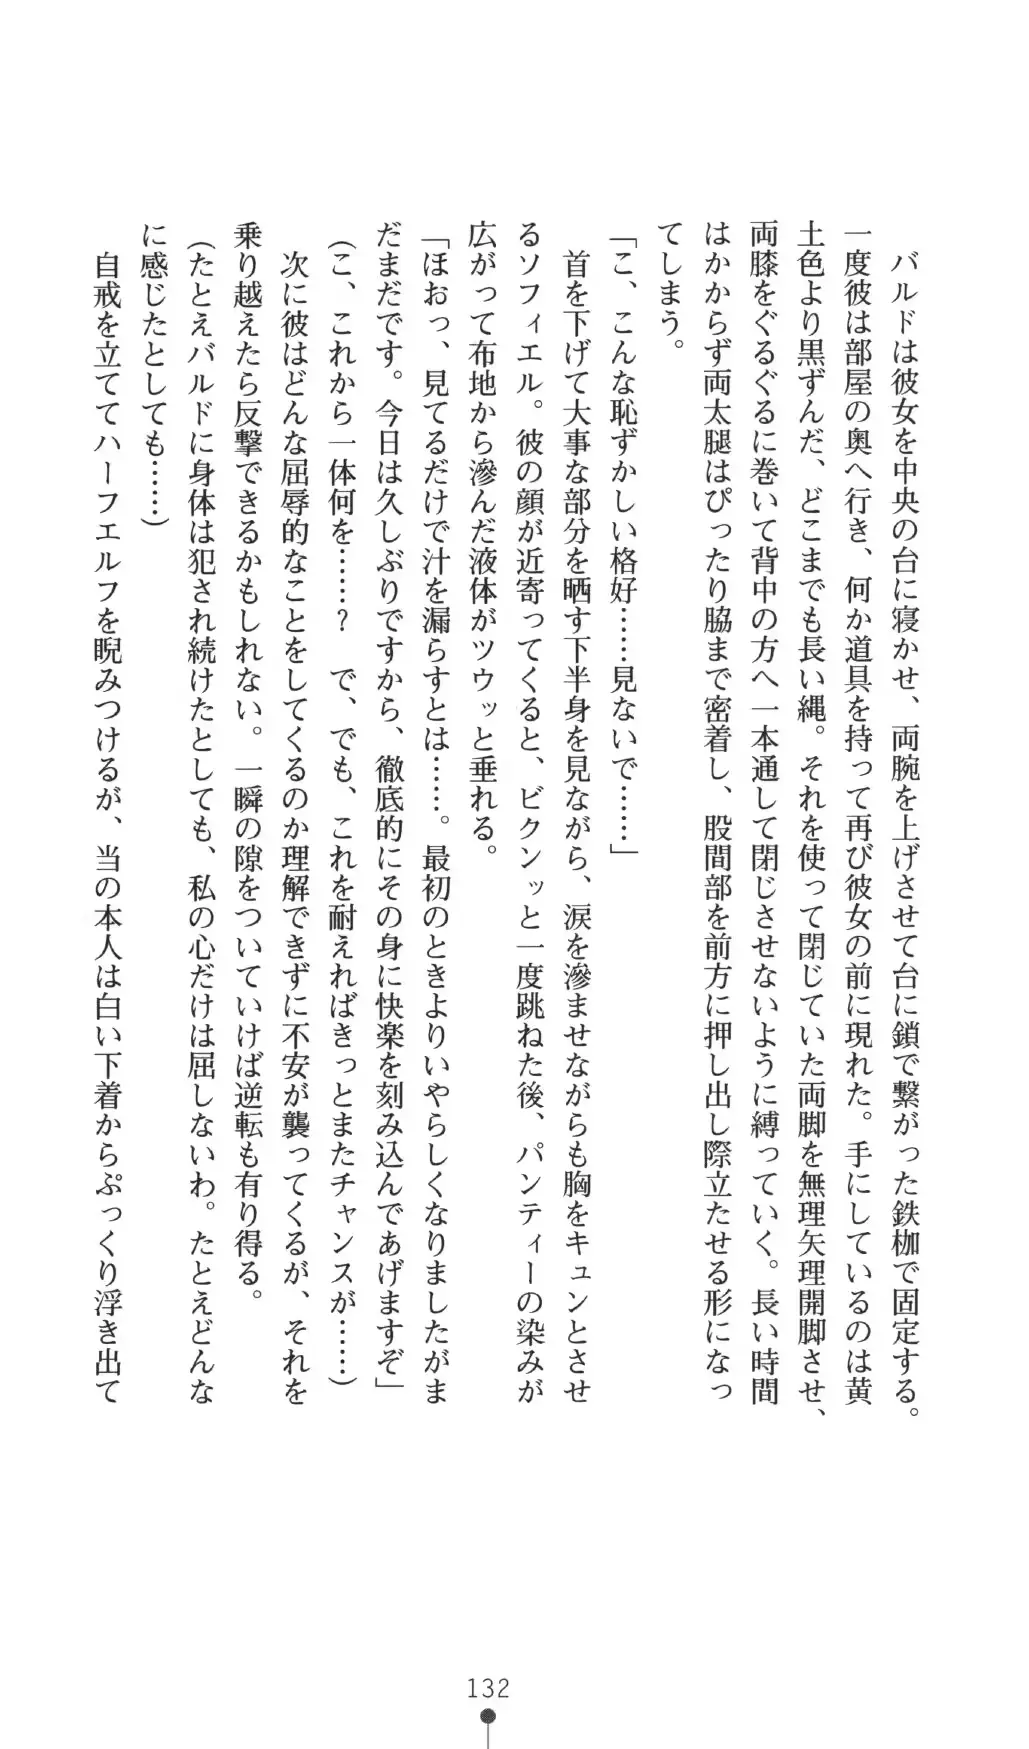 バルドは彼女を中央の台に寝かせ、両腕を上げさせて台に鎖で繋がった鉄枷で固定する。
一度彼は部屋の奥へ行き、何か道具を持って再び彼女の前に現れた。手にしているのは黄
土色より黒ずんだ、どこまでも長い縄。それを使って閉じていた両脚を無理矢理開脚させ、
両膝をぐるぐるに巻いて背中の方へ一本通して閉じさせないように縛っていく。長い時間
はかからず両太腿はぴったり脇まで密着し、股間部を前方に押し出し際立たせる形になっ
てしまう。
「こ、こんな恥ずかしい格好……見ないで……」
首を下げて大事な部分を晒す下半身を見ながら、涙を滲ませながらも胸をキュンとさせ
るソフィエル。彼の顔が近寄ってくると、ビクンッと一度跳ねた後、パンティーの染みが
広がって布地から滲んだ液体がツウッと垂れる。
「ほおっ、見てるだけで汁を漏らすとは……。最初のときよりいやらしくなりましたがま
だまだです。今日は久しぶりですから、徹底的にその身に快楽を刻み込んであげますぞ」
（こ、これから一体何を……？　で、でも、これを耐えればきっとまたチャンスが……）
次に彼はどんな屈辱的なことをしてくるのか理解できずに不安が襲ってくるが、それを
乗り越えたら反撃できるかもしれない。一瞬の隙をついていけば逆転も有り得る。
（たとえバルドに身体は犯され続けたとしても、私の心だけは屈しないわ。たとえどんな
に感じたとしても……）
自戒を立ててハーフエルフを睨みつけるが、当の本人は白い下着からぷっくり浮き出て
132